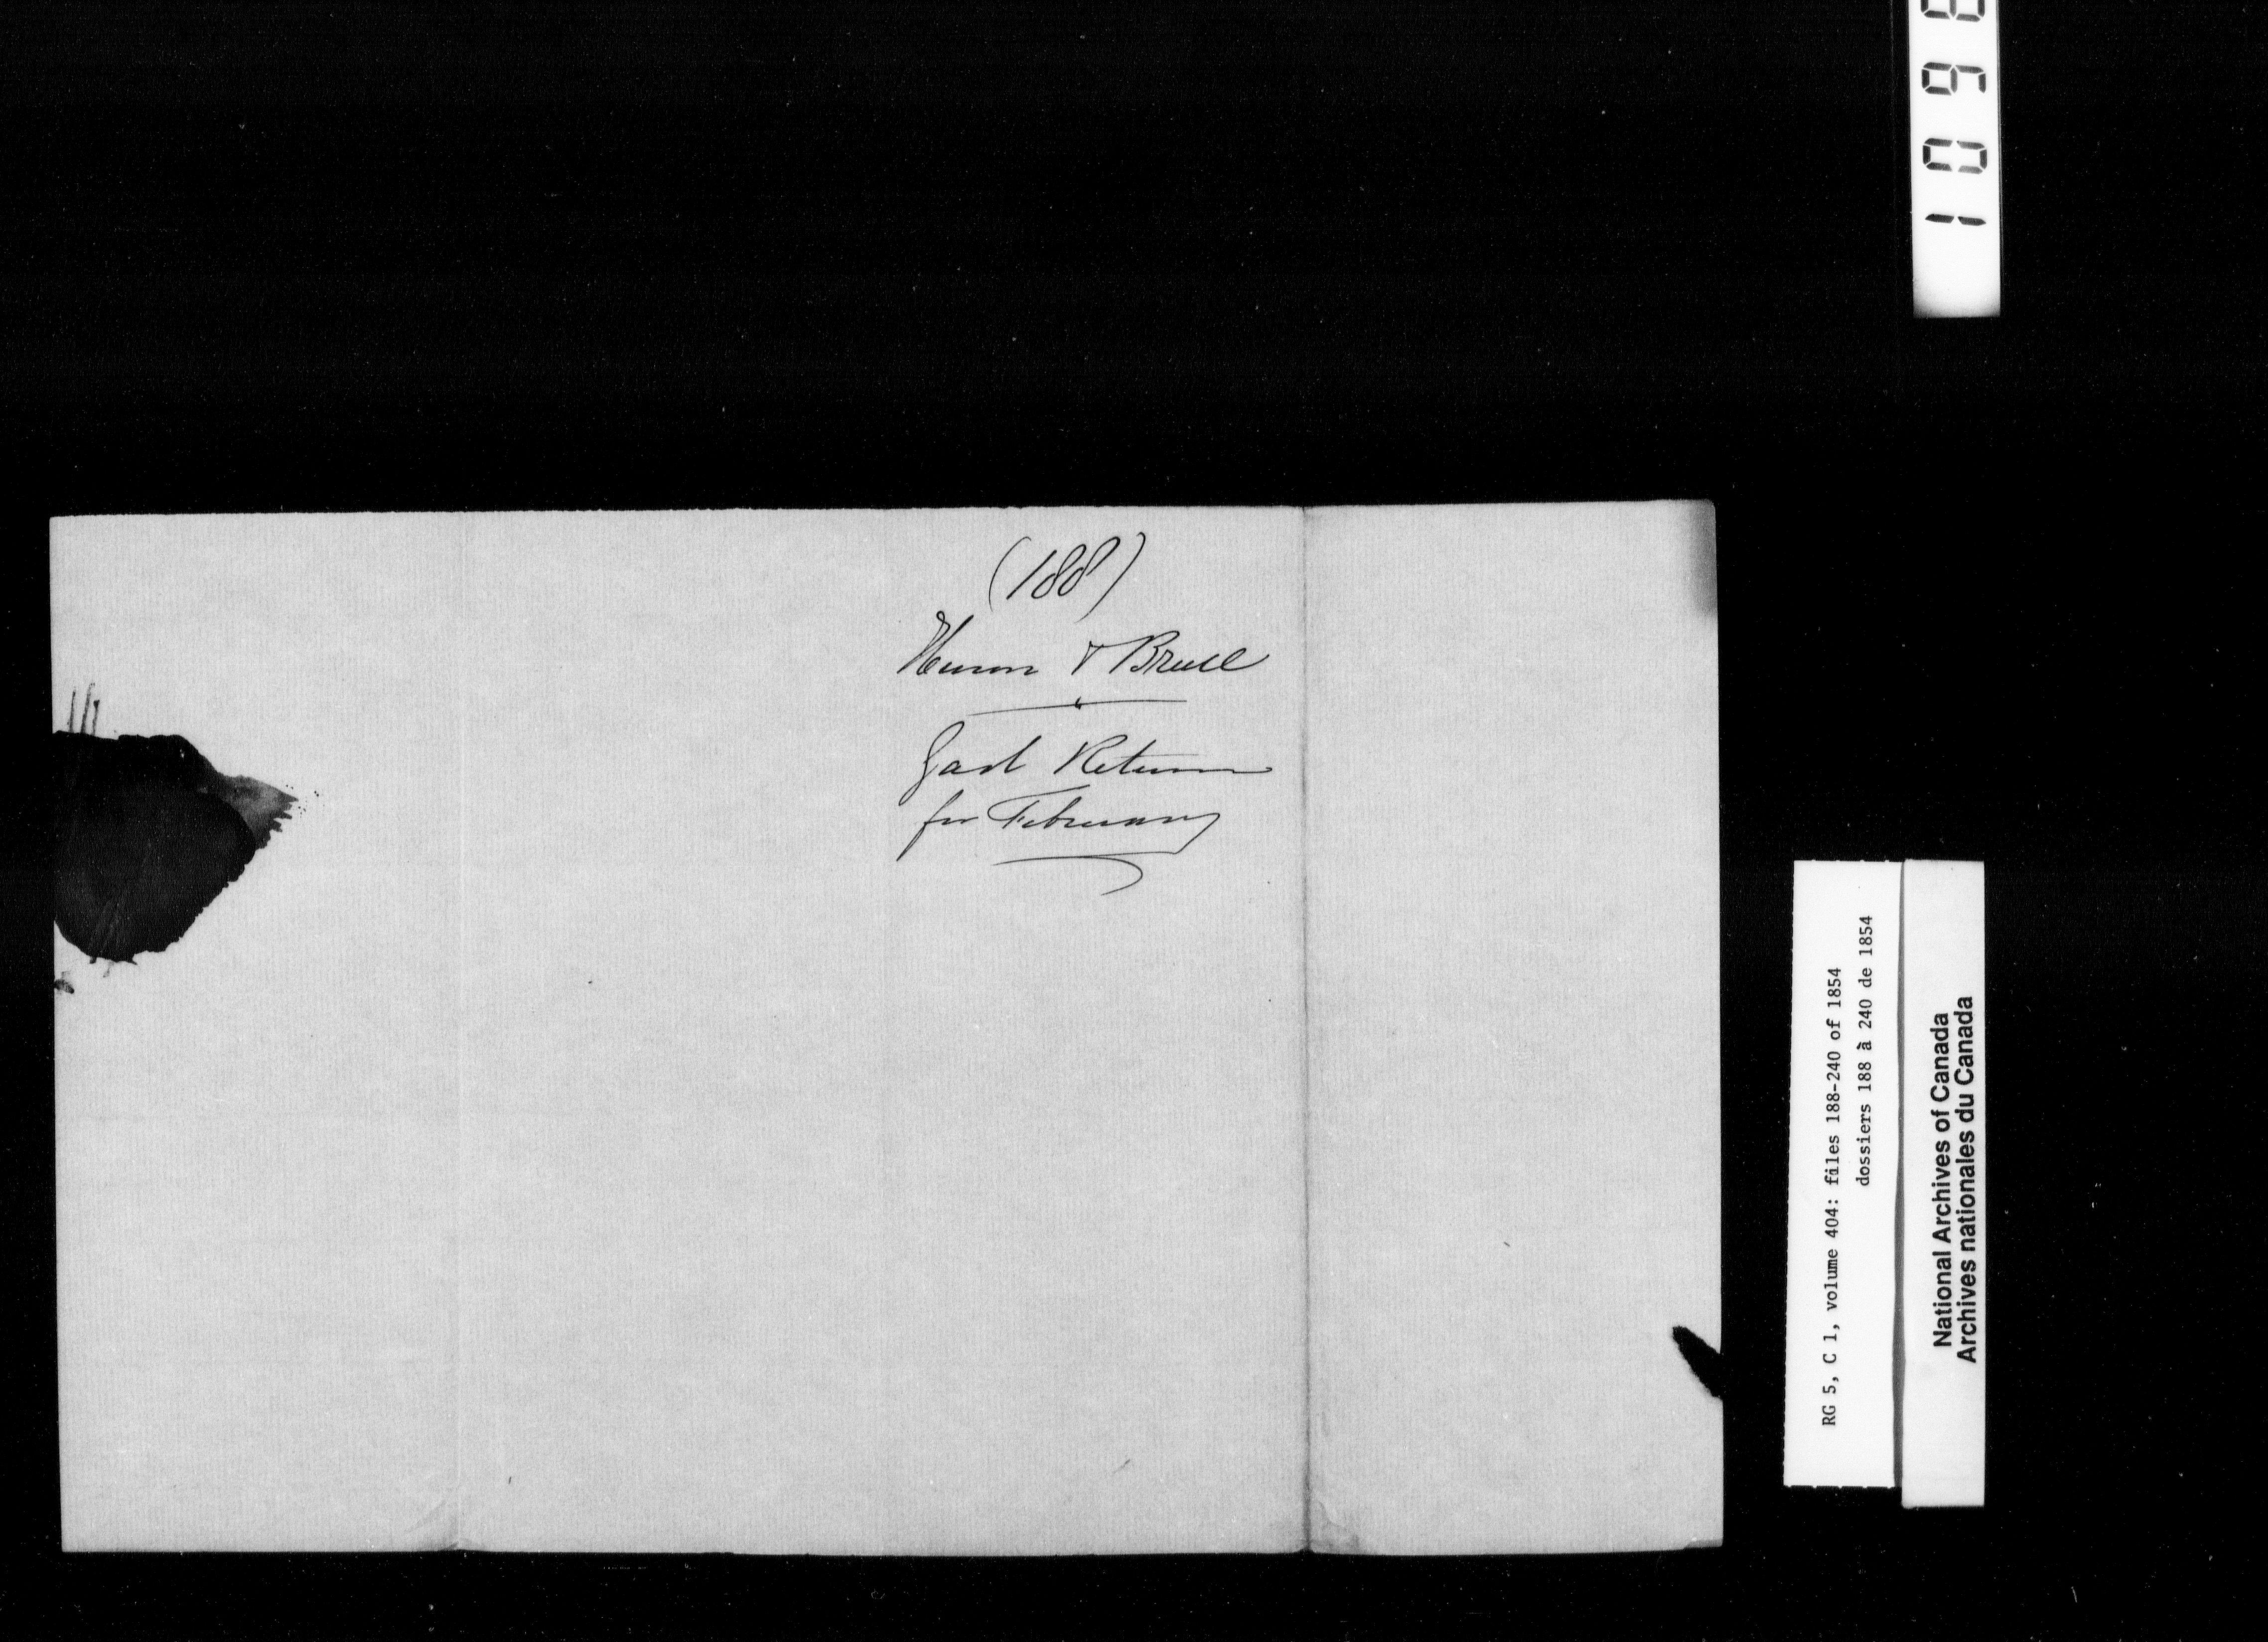 (188)
Huron & Bruce
Gaol Return
for February
RG 5, C 1, volume 404: files 188-240 of 1854
dossiers 188 à 240 de 1854
National Archives of Canada
Archives nationales du Canada
109